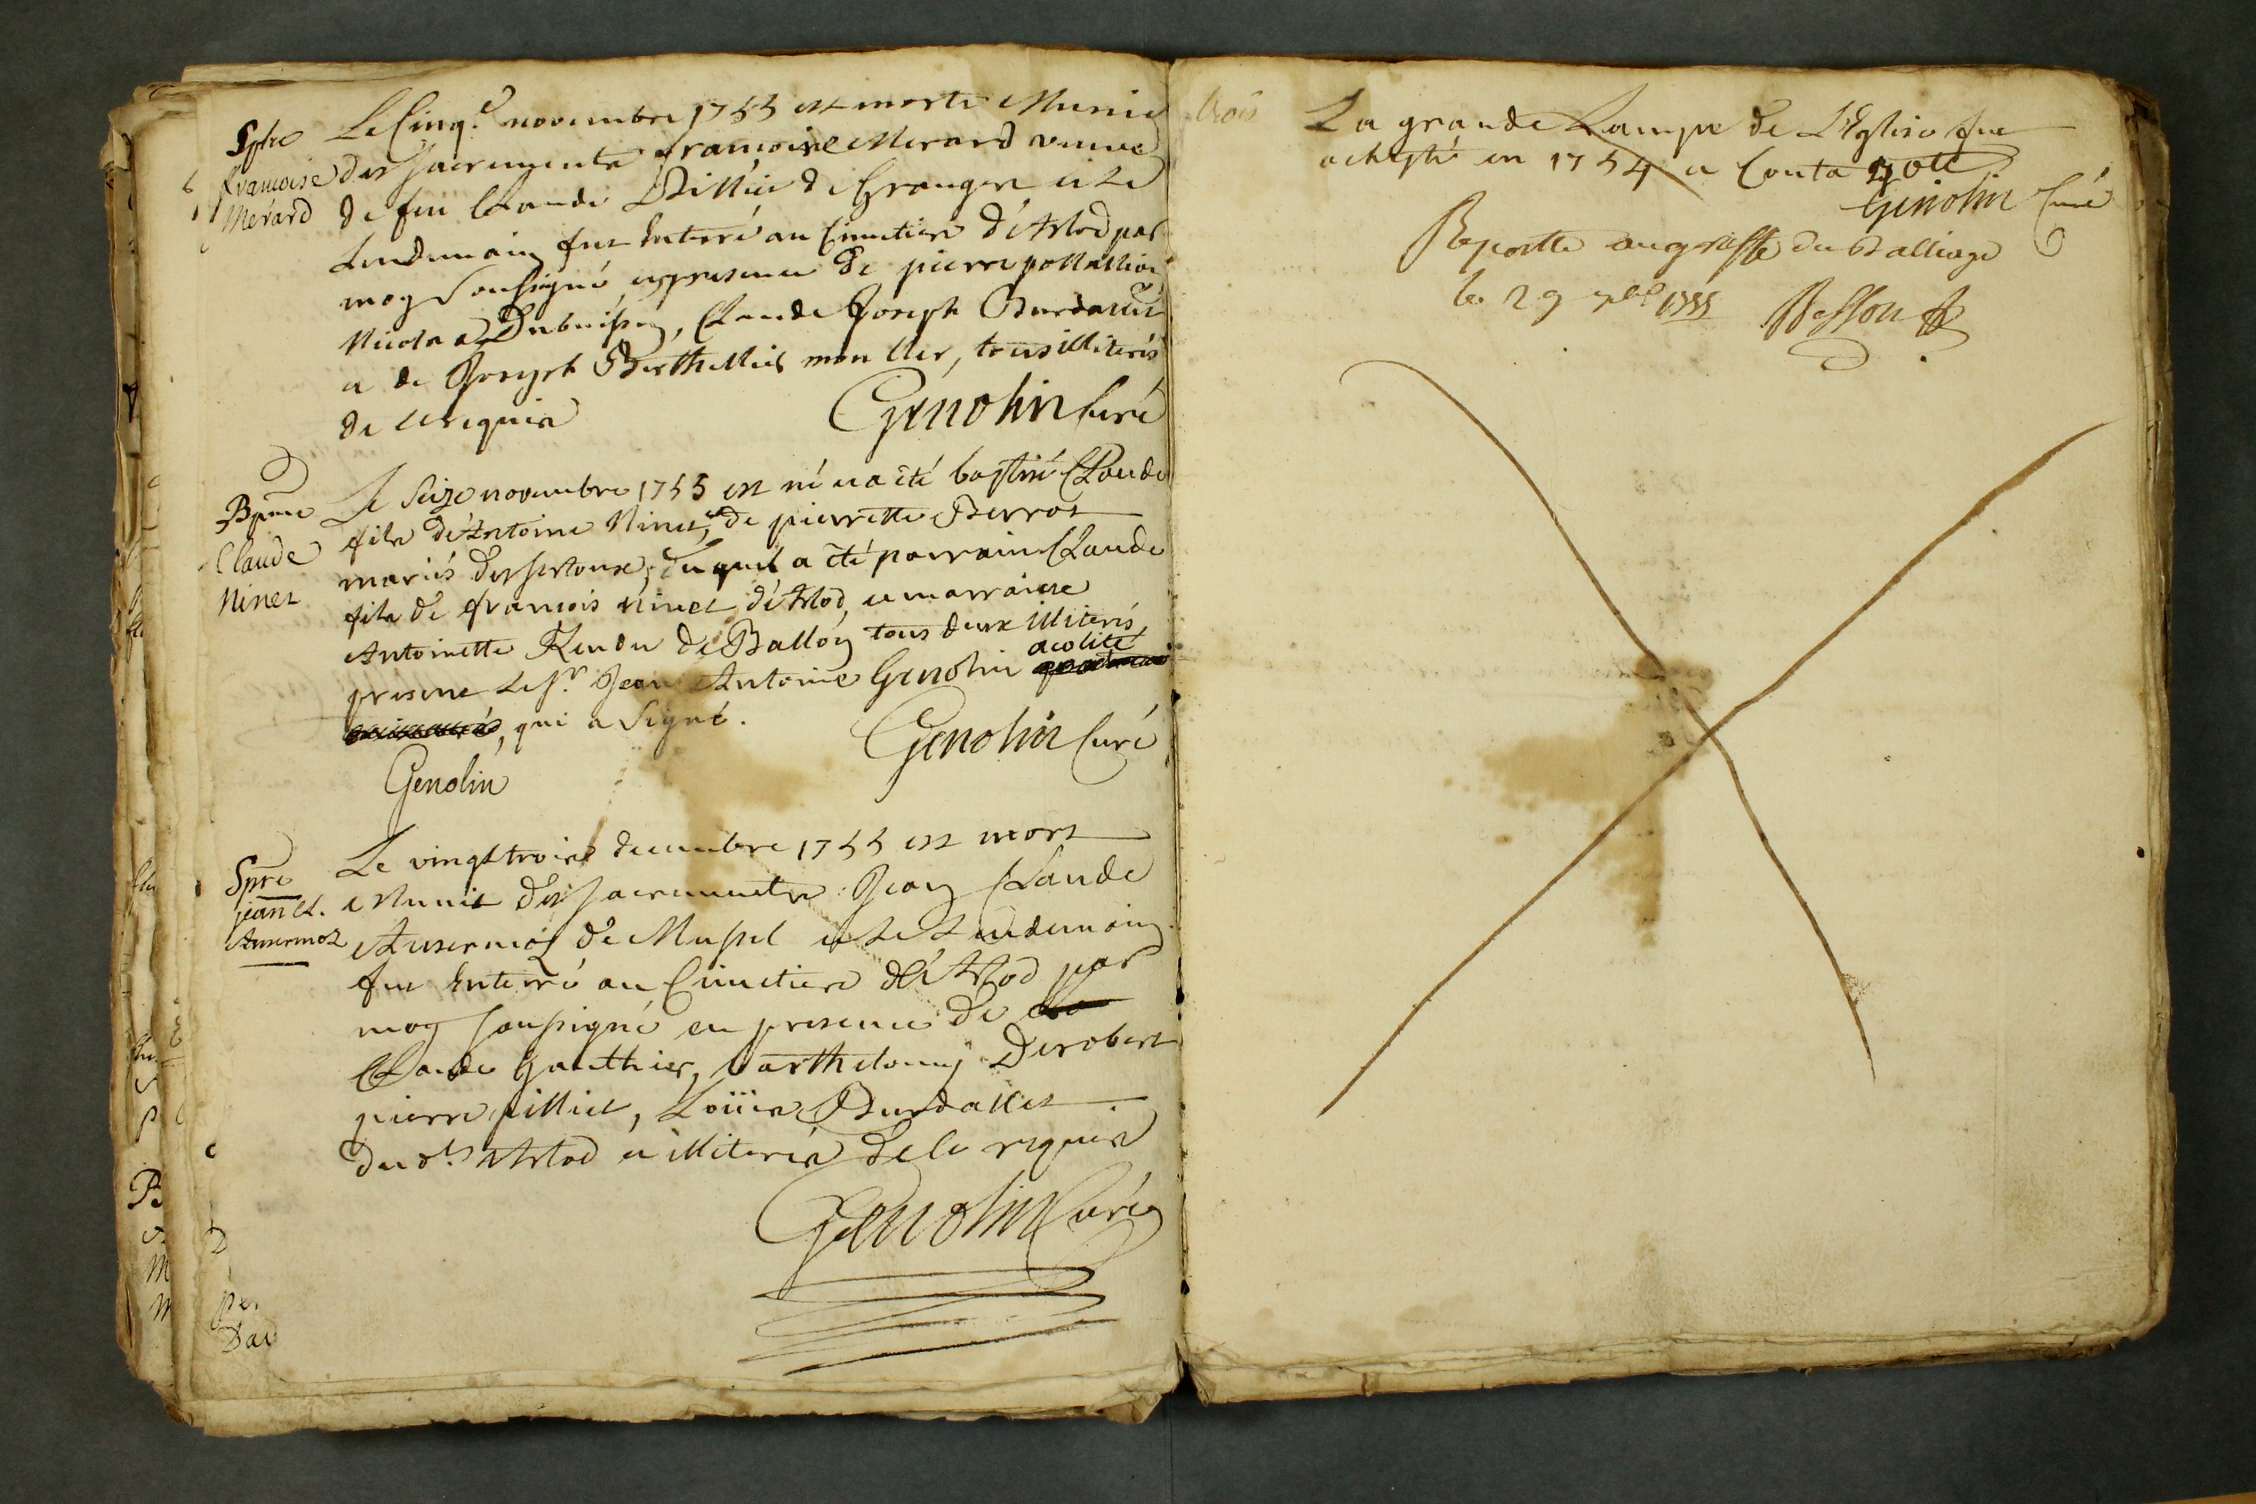 Spre
françoise
Merard
Le Cinq.e novembre 1755 est morte Munie
des sacrements françoise Merard veuve
de feu Claude Billiet de Granges et le
Lendemain fut Enterré au Cimetiere d'Arlod par
moy soussigné, en presence de pierre
Nicolas Dubuisson, Claude Joseph Burdallet
et de Joseph Berthellier mon Cler, tous illiterés
de ce requis
Genolin Curé
Bpme
Claude
Ninet
Le Seize novembre 1755 est né et a été baptisé Claude
fils d'Antoine Ninet, et de pierrette Perrot
mariés des sertoux; duquel a été parrain Claude
fils de françois Ninet d'Arlod, et marraine
Antoinette Rendu de Ballon tous deux illiterés,
presence Le Sr. Jean Antoine Genolin acolite
, qui a Signé.
Genolin Curé
Genolin
Spre
jean Cl.
Ansermoz
Le vingt trois decembre 1755 est mort
Munit des sacrements Jean Claude
Ansermoz de Mussel et le Lendemain
fut Enterré au Cimetiere d'Arlod par
moy soussigné en presence de
Claude Gauthier, Barthelemy Derobert
pierre pilliet, Loüis Burdallet
du dt. Arlod et illiterés de ce requis
Genolin Curé
trois
La grande Lampe de L'Eglise fut
acheptée en 1754 et Couta
Genolin Curé
Reportté au greffe du Balliage
le 29 xbre 1755 Besson